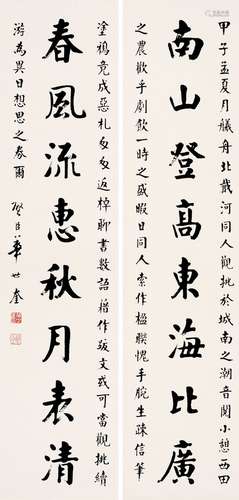 甲子孟夏月艤舟北戴河同人觀挑於城南之潮音閣小憩西田
南山登高東海比廣
之農歡乎劇飲一時之盛暇日同人索作楹聯愧手腕生疎信筆
塗鴉竟成惡札匆匆返棹聊書數語藉作跋文或可當觀挑續
春風流惠秋月表清
游為異日想思之券爾
璧臣華世奎